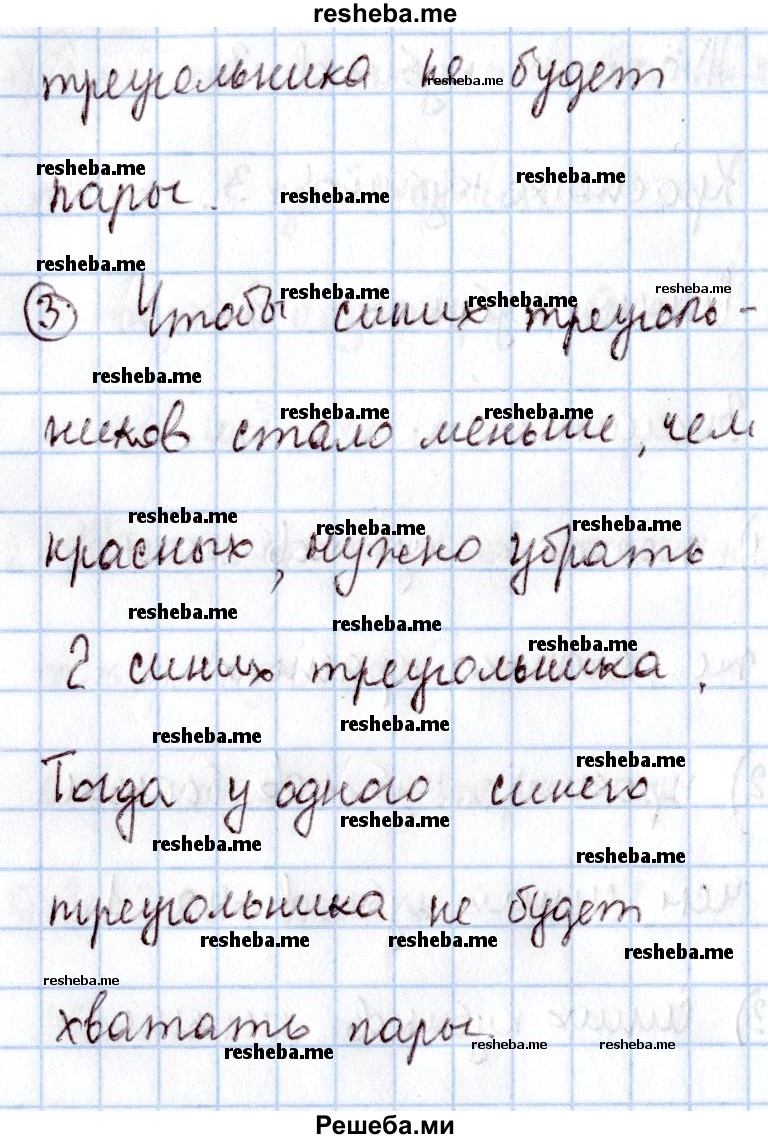 resheba.me
треугольника не будет
resheba.me
resheba.me resheba.me
пары. resheba.me
resheba.me
resheba.me resheba.me resheba.me
③ Чтобы синих треуголь-
resheba.me
resheba.me resheba.me
ников стало меньше, чем
resheba.me resheba.me resheba.me
красных, нужно убрать
resheba.me resheba.me
resheba.me
2 синих треугольника.
resheba.me resheba.me
resheba.me
Тогда у одного синего
resheba.me
resheba.me resheba.me
треугольника не будет
resheba.me resheba.me resheba.me
resheba.me
хватать пары.
resheba.me resheba.me resheba.me
Решеба.ми